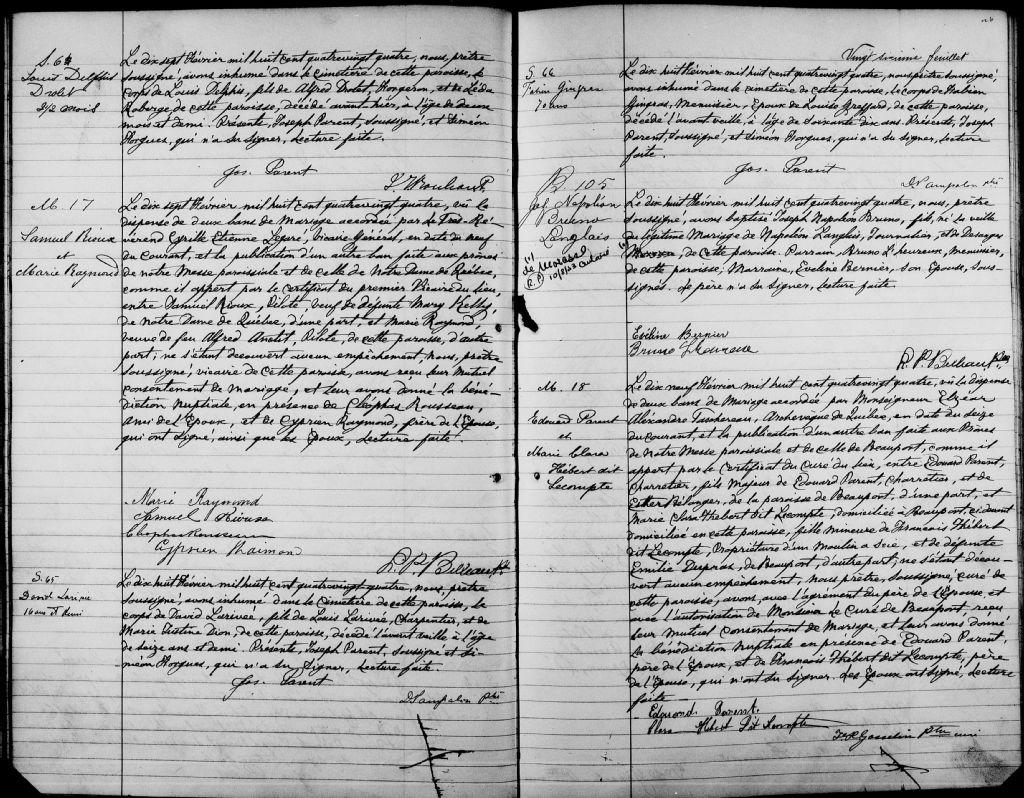 S. 64
Louis Delphis
Drolet
2 1/2 mois
Le dix sept Février mil huit cent quatrevingt quatre, nous, prêtre
soussigné, avons inhumé dans le cimetière de cette paroisse, le
corps de Louis Delphis, fils de Alfred Drolet, Forgeron, et de Léda
Roberge de cette paroisse, décédé avant hier, à l'âge de deux
mois et demi. Présents, Joseph Parent, soussigné, et Siméon
Horgues, qui n'a su signer, Lecture faite.
Jos. Parent
M. 17
Samuel Rioux
et
Marie Raymond
Le dix sept Février mil huit cent quatrevingt quatre, vu la
dispense de deux bans de Mariage accordée par le Très-Ré-
vérend Cyrille Etienne Legaré, Vicaire Général, en date du neuf
du courant, et la publication d'un autre ban faite aux prônes
de notre Messe paroissiale et de celle de Notre Dame de Québec,
comme il appert par le certificat du premier Vicaire du lieu,
entre Samuel Rioux, Pilote, veuf de défunte Mary Kelly,
de Notre Dame de Québec, d'une part, et Marie Raymond,
veuve de feu Alfred Anctil, Pilote, de cette paroisse, d'autre
part; ne s'étant découvert aucun empêchement, nous, prêtre
soussigné, vicaire de cette paroisse, avons reçu leur mutuel
consentement de mariage, et leur avons donné la béné-
diction nuptiale, en présence de Cléophas Rousseau,
ami de l'Epoux, et de Cyprien Raymond, frère de l'Epouse,
qui ont signé, ainsi que les Epoux, Lecture faite.
Marie Raymond
Samuel Rioux
Cleophas Rousseau
Cyprien Raimond
R. P. Belleau Ptre
S. 65
David Larivée
16 ans et demi
Le dix huit Février mil huit cent quatrevingt quatre, nous, prêtre
soussigné, avons inhumé dans le cimetière de cette paroisse, le
corps de David Larivée, fils de Louis Larivée, Charpentier, et de
Marie Dion, de cette paroisse, décédé l'avant veille à l'âge
de seize ans et demi. Présents, Joseph Parent, soussigné et Si-
méon Horgues, qui n'a su signer, Lecture faite.
Jos. Parent
Ptre
26
Vingt sixième feuillet
S. 66
Fabien Gingras
70 ans
Le dix huit Février mil huit cent quatrevingt quatre, nous prêtre soussigné,
avons inhumé dans le cimetière de cette paroisse, le corps de Fabien
Gingras, Menuisier, Epoux de Louise, de cette paroisse,
décédé l'avant veille, à l'âge de soixante dix ans. Présents, Joseph
Parent, soussigné, et Siméon Horgues, qui n'a su signer, Lecture
faite.
Jos. Parent
ptre
B. 105
Jos. Napoléon
Bruno
Langlais
(1)
de
(R.P.)
Le dix huit Février mil huit cent quatrevingt quatre, nous, prêtre
soussigné, avons baptisé Joseph Napoléon Bruno, fils, né la veille
du légitime Mariage de Napoléon Langlais, Journalier, et de
de cette paroisse. Parrain, Bruno L'heureux, menuisier,
de cette paroisse; Marraine, Eveline Bernier, son Epouse, sous-
signés. Le père n'a su signer, lecture faite.
Evéline Bernier
Bruno L'heureux
R. P. Belleau Ptre
M. 18
Edouard Parent
et
Marie Clara
Hébert dit
Lecompte
Le dix neuf Février mil huit cent quatrevingt quatre, vu la dispense
de deux bans de Mariage accordée par Monseigneur Elzéar
Alexandre Taschereau, Archevêque de Québec, en date du seize
du courant, et la publication d'un autre ban faite aux Prônes
de Notre Messe paroissiale et de celle de Beauport, comme il
appert par le certificat du Curé du lieu, entre Edouard Parent,
Charretier, fils majeur de Edouard Parent, Charretier, et de
Esther Bélanger, de la paroisse de Beauport, d'une part, et
Marie Clara Hébert dit Lecompte, domiciliée à Beauport, ci devant
domiciliée en cette paroisse, fille mineure de François Hébert
dit Lecompte, Propriétaire d'un Moulin à Scie, et de défunte
Emilie Dupras, de Beauport, d'autre part; ne s'étant décou-
vert aucun empêchement, nous prêtre, soussigné, curé de
cette paroisse, avons, avec l'agrément du père de l'Epouse, et
avec l'autorisation de Monsieur le Curé de Beauport reçu
leur mutuel consentement de Mariage, et leur avons donné
la bénédiction nuptiale en présence de Edouard Parent,
père de l'Epoux, et de François Hébert dit Lecompte, père
de l'Epouse, qui n'ont su signer. Les Epoux ont signé, Lecture
faite
Edouard Parent.
Clara Hébert Dit Lecompte
F. X. Gosselin Ptre curé